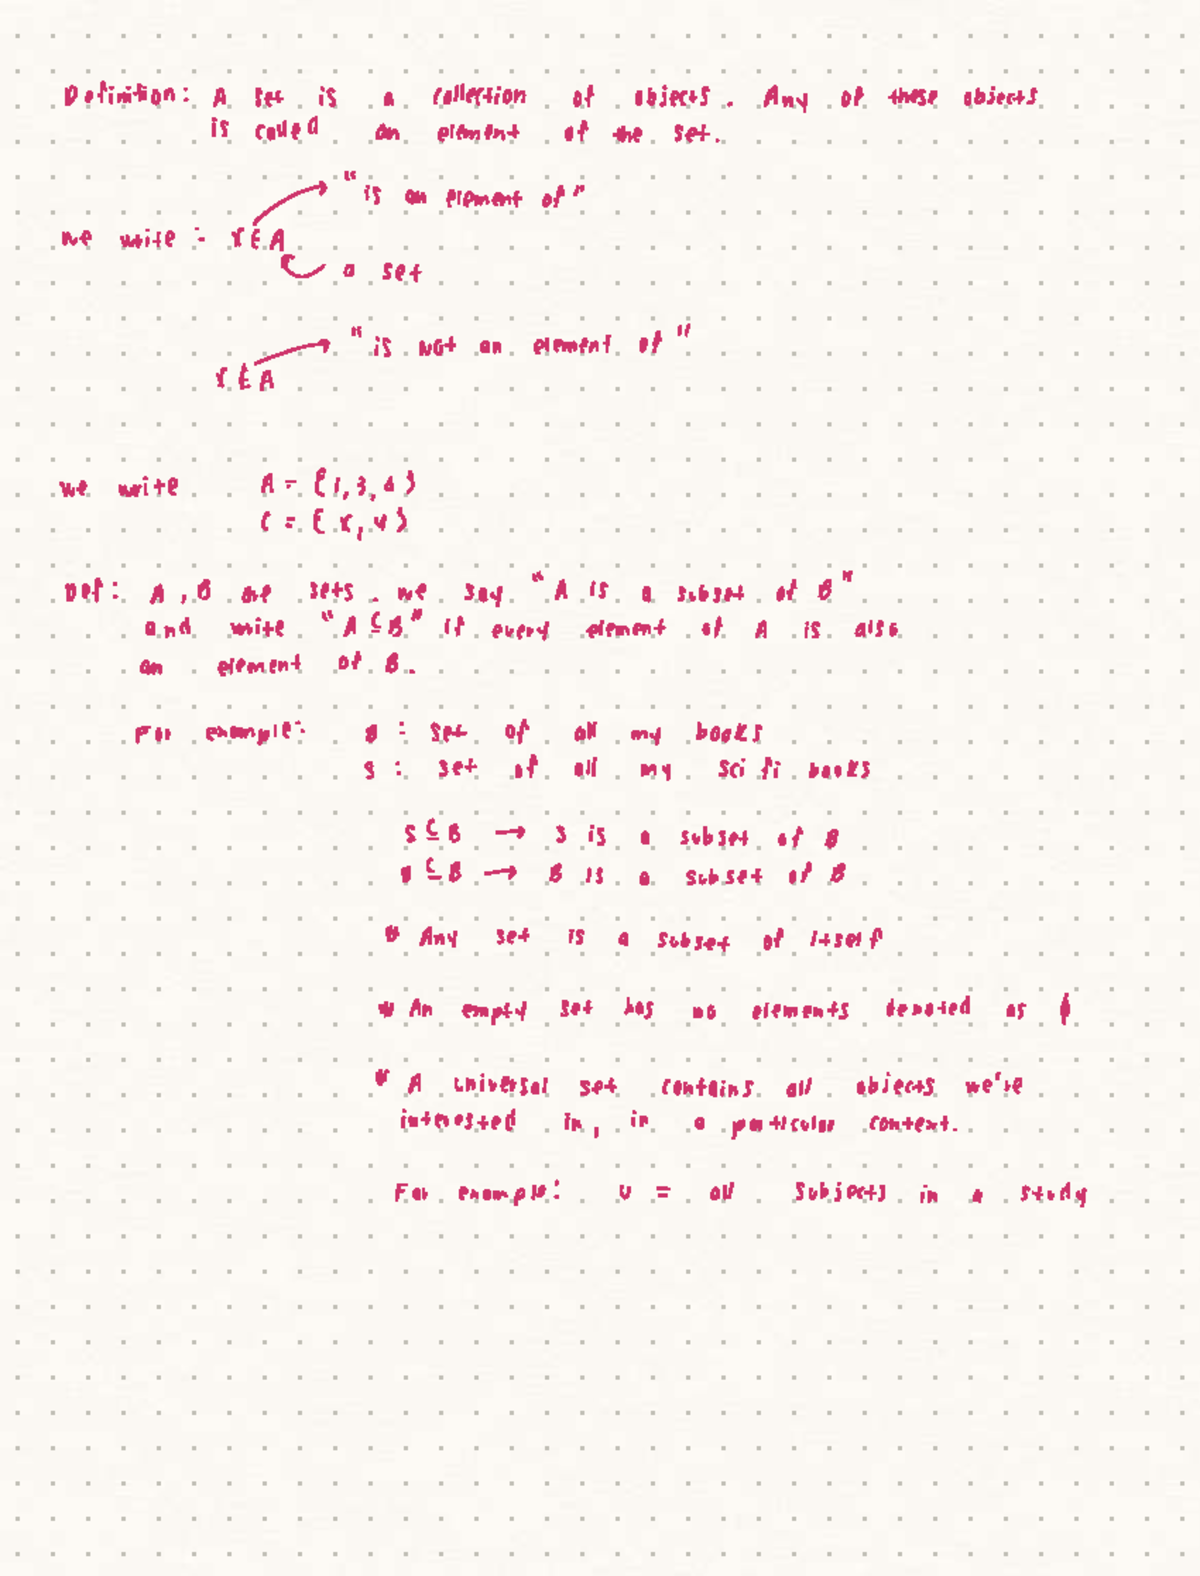 Definition: A set is a collection of objects. Any of these objects
is called an element of the set.
"is an element of"
we write: x ∈ A
a set
"is NOT an element of"
x ∉ A
we write A = {1, 3, a}
C = { x, y }
Def: A, B are sets. we say "A is a subset of B"
and write "A ⊆ B" if every element of A is also
an element of B.
For example: B : set of all my books
S : set of all my sci fi books
S ⊆ B → S is a subset of B
B ⊆ B → B is a subset of B
* Any set is a subset of itself
* An empty set has no elements denoted as ϕ
* A universal set contains all objects we're
interested in, in a particular context.
For example: U = all subjects in a study